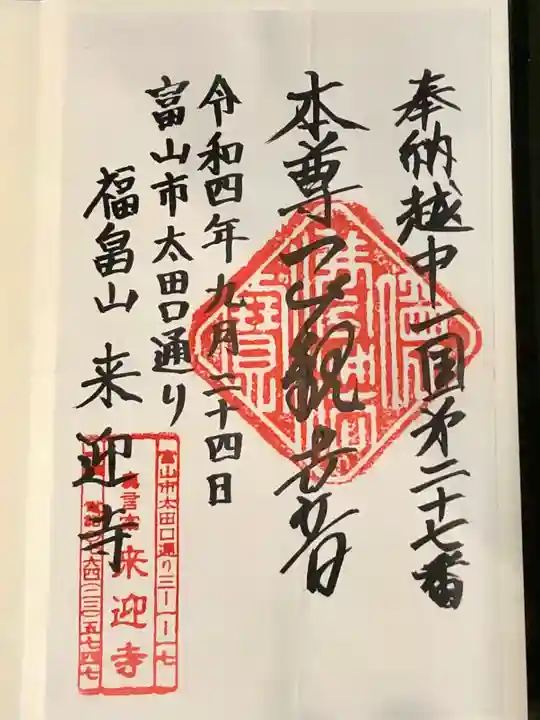 奉納越中一国第二十七番
本尊正観世音
令和四年九月二十四日
富山市太田口通り
福畠山 来迎寺
富山市太田口通り三ー一ー七
真言宗 来迎寺
電話〇七六四(二三)五七四七